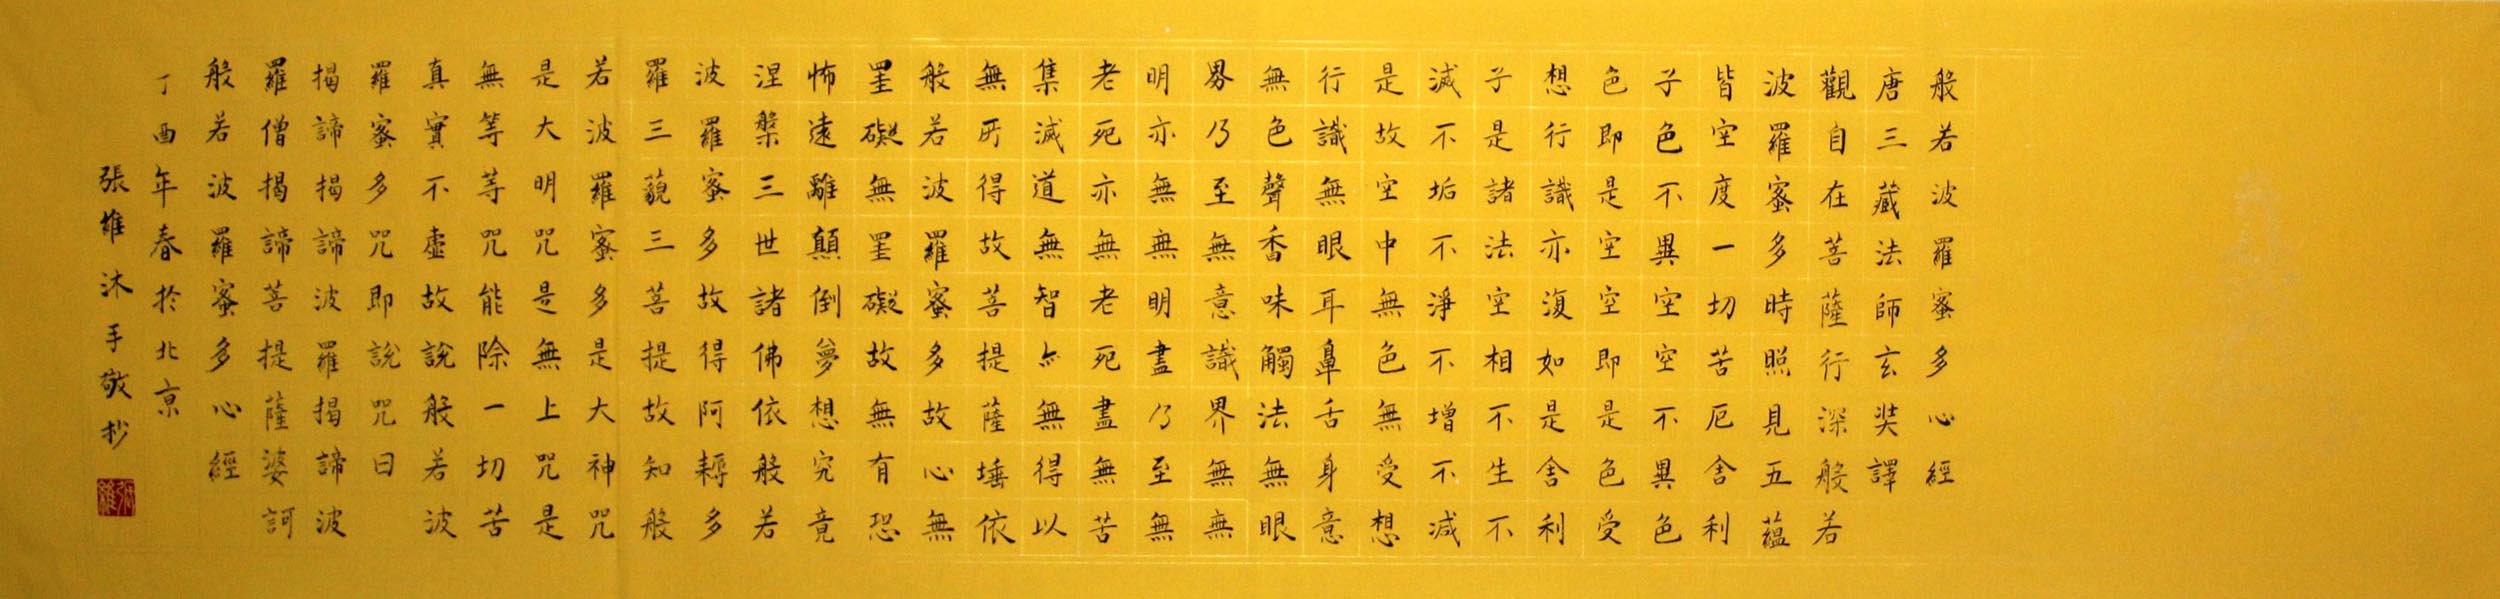 般若波羅蜜多心經
唐三藏法師玄奘譯
觀自在菩薩行深般若
波羅蜜多時照見五蘊
皆空度一切苦厄舍利
子色不異空空不異色
色即是空空即是色受
想行識亦復如是舍利
子是諸法空相不生不
滅不垢不淨不增不減
是故空中無色無受想
行識無眼耳鼻舌身意
無色聲香味觸法無眼
界乃至無意識界無無
明亦無無明盡乃至無
老死亦無老死盡無苦
集滅道無智亦無得以
無所得故菩提薩埵依
般若波羅蜜多故心無
罣礙無罣礙故無有恐
怖遠離顛倒夢想究竟
涅槃三世諸佛依般若
波羅蜜多故得阿耨多
羅三藐三菩提故知般
若波羅蜜多是大神咒
是大明咒是無上咒是
無等等咒能除一切苦
真實不虛故說般若波
羅蜜多咒即說咒曰
揭諦揭諦波羅揭諦波
羅僧揭諦菩提薩婆訶
般若波羅蜜多心經
丁酉年春於北京
張維沐手敬抄
張維